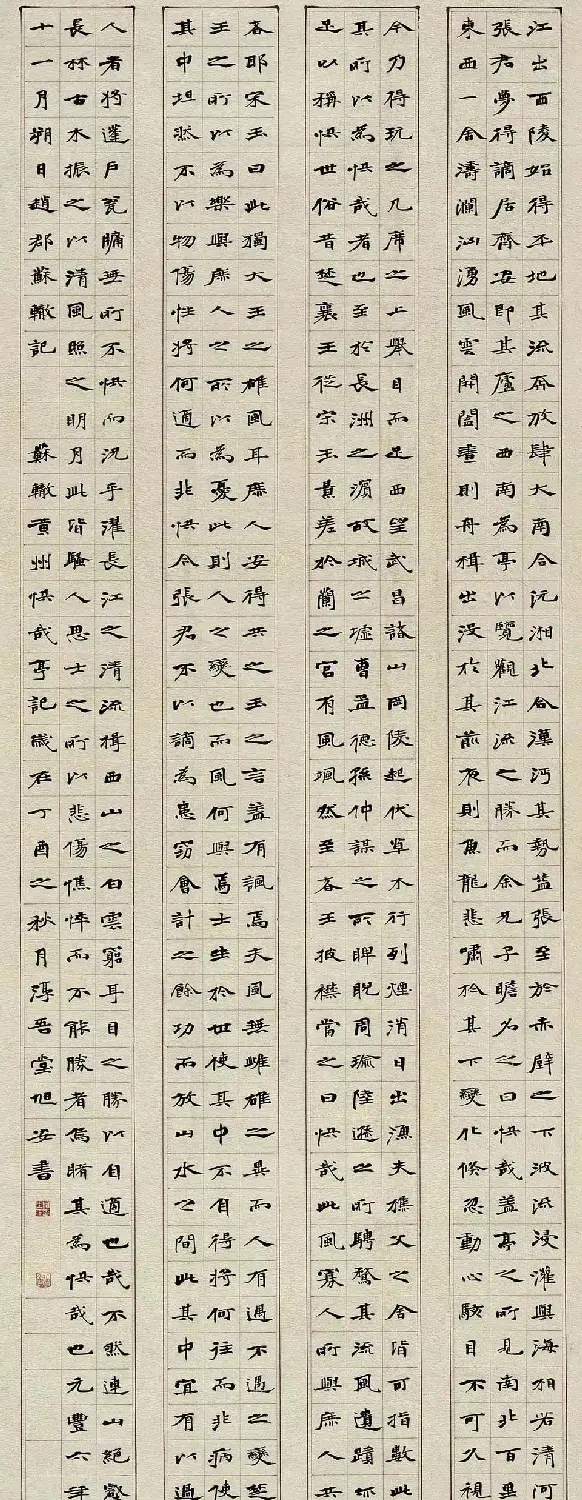 江出西陵始得平地其流奔放肆大南合沅湘北合漢沔其勢益張至於赤壁之下波流浸灌與海相若清河
張君夢得謫居齊安即其廬之西南為亭以覽觀江流之勝而余兄子瞻名之曰快哉蓋亭之所見南北百里
東西一舍濤瀾洶湧風雲開闔晝則舟楫出沒於其前夜則魚龍悲嘯於其下變化倏忽動心駭目不可久視
今乃得玩之几席之上舉目而足西望武昌諸山岡陵起伏草木行列煙消日出漁夫樵父之舍皆可指數此
其所以為快哉者也至於長洲之濱故城之墟曹孟德孫仲謀之所睥睨周瑜陸遜之所騁騖其流風遺蹟亦
足以稱快世俗昔楚襄王從宋玉景差於蘭之宮有風颯然至者王披襟當之曰快哉此風寡人所與庶人共
者耶宋玉曰此獨大王之雄風耳庶人安得共之玉之言蓋有諷焉夫風無雌雄之異而人有遇不遇之變楚
王之所以為樂與庶人之所以為憂此則人之變也而風何與焉士生於世使其中不自得將何往而非病使
其中坦然不以物傷性將何適而非快今張君不以謫為患竊會計之餘功而放山水之間此其中宜有以過
人者將蓬戶甕牖無所不快而況乎濯長江之清流揖西山之白雲窮耳目之勝以自適也哉不然連山絕壑
長林古木振之以清風照之明月此皆騷人思士之所以悲傷憔悴而不能勝者烏睹其為快哉也元豐六年
十一月朔日趙郡蘇轍記 蘇轍黃州快哉亭記歲在丁酉之秋月淳吾堂旭安書